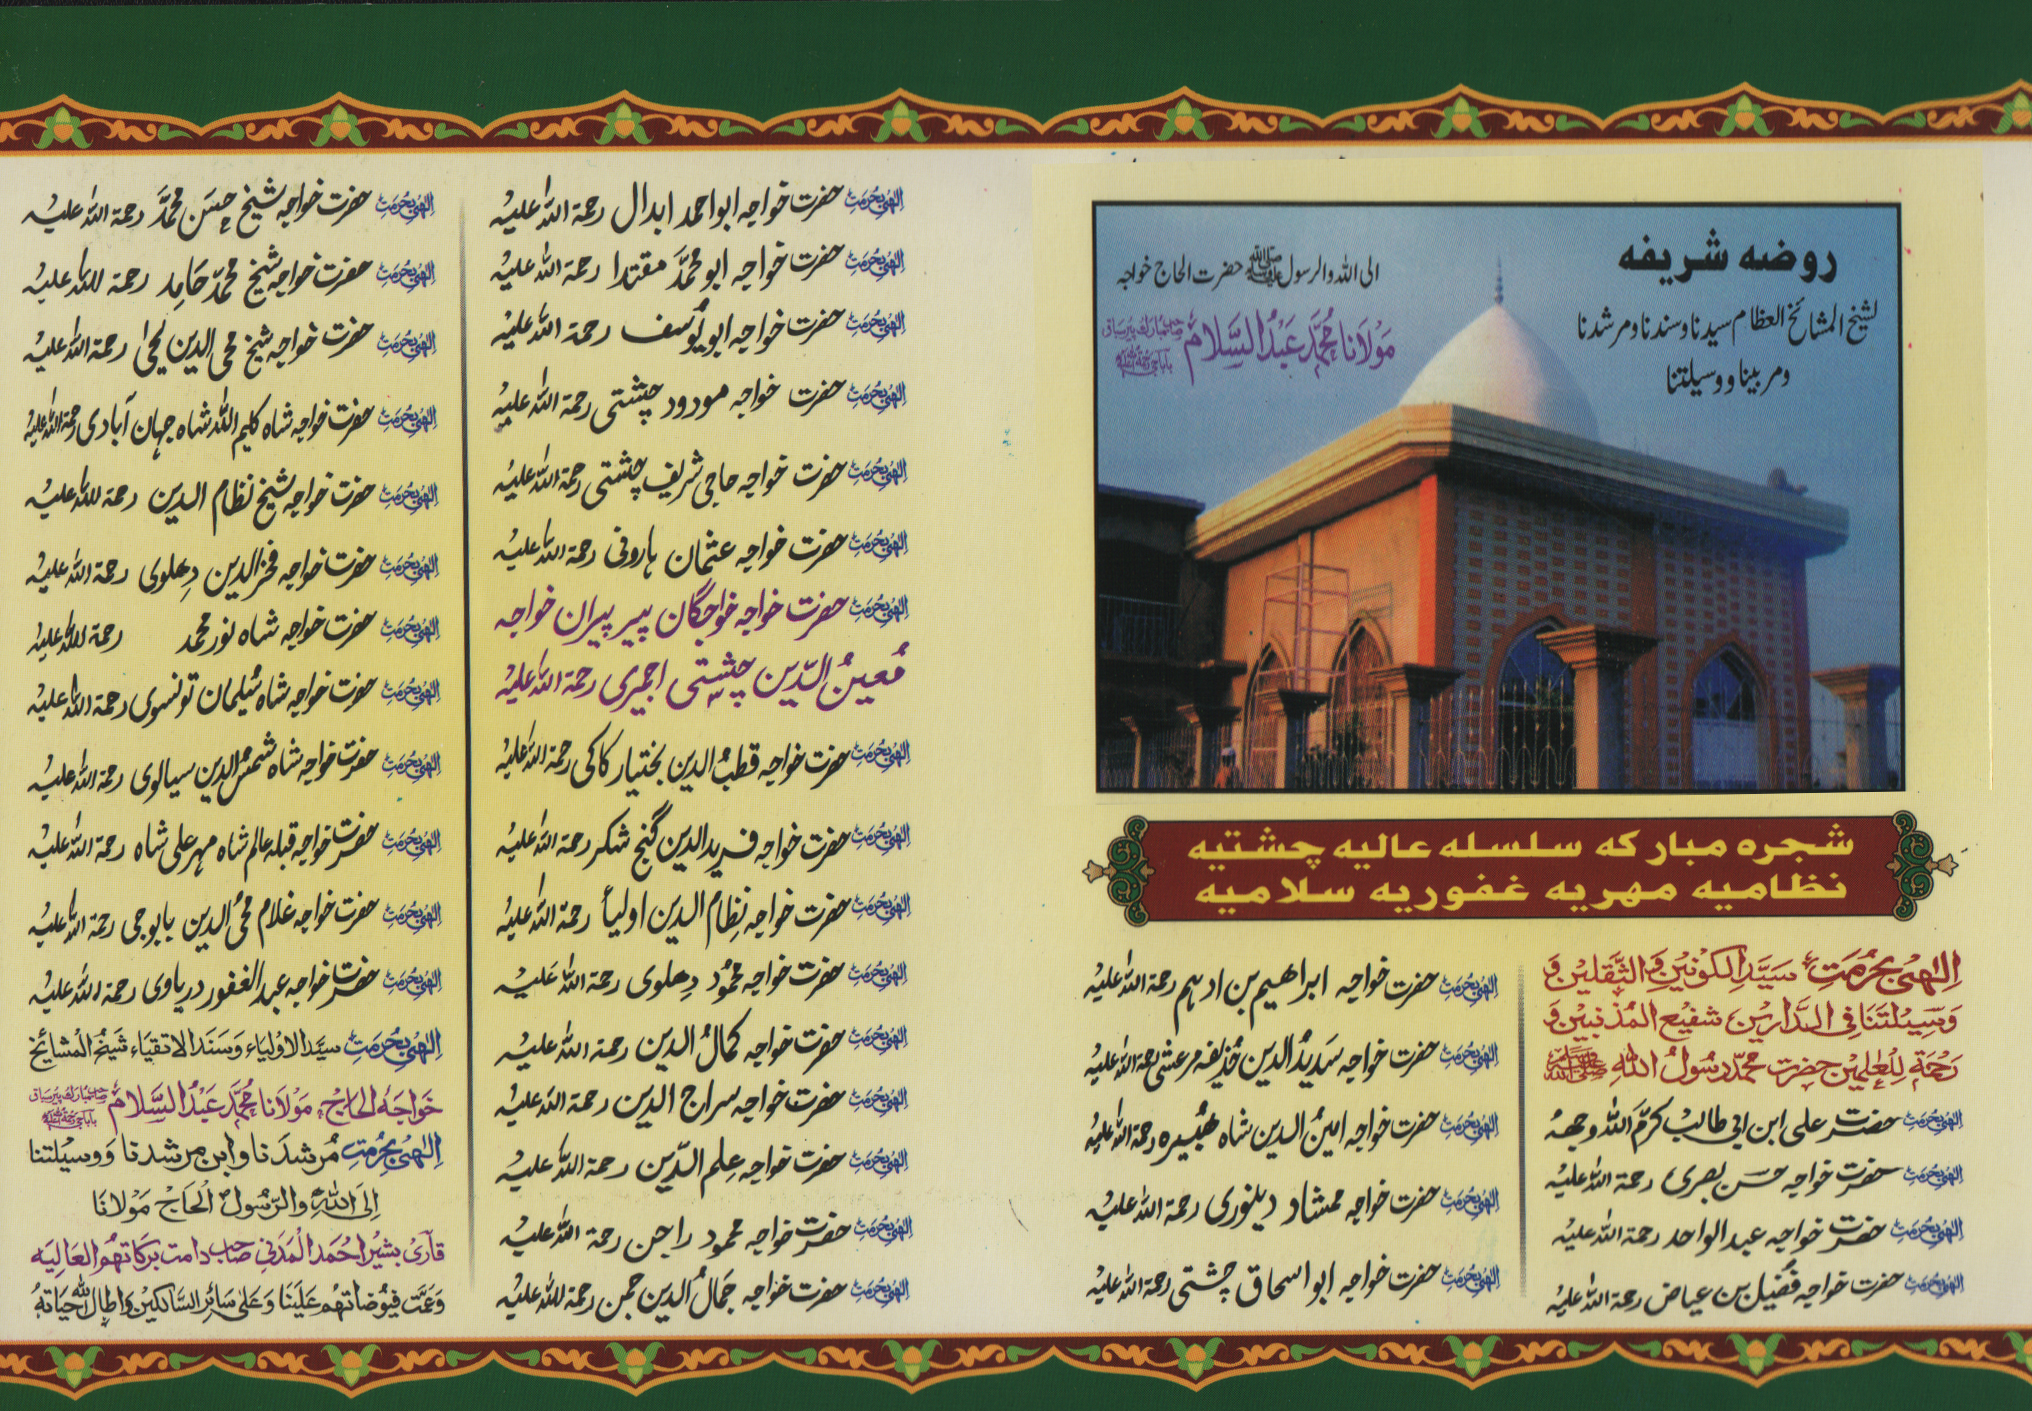 روضه شریفه
لشیخ المشائخ العظام سیدنا وسندنا ومرشدنا
ومربینا ووسیلتنا
الی الله والرسول ﷺ حضرت الحاج خواجہ
مَولانا مُحمَّد عَبدُ السَّلام صاحب مبارک پیرسباق
باباجی رحمۃ اللہ علیہ
شجره مبارکه سلسله عالیه چشتیه
نظامیه مهریه غفوریه سلامیه
اِلٰهی بحُرمَتِ سَیَّدِ الکَونَینِ وَ الثَّقلَینِ وَ
وَسِیلَتَنَا فِی الدَّارَینِ شفیع المُذنبِینَ وَ
رَحْمَةٍ لِلعٰلمِینَ حضرت محمَّد رسُولُ اللهِ ﷺ
اِلٰهی بحُرمَتِ حضرت علی ابن ابی طالب کرَّمَ الله وجهہٗ
اِلٰهی بحُرمَتِ حضرت خواجہ حسَن بصری رحمۃ اللہ علیہ
اِلٰهی بحُرمَتِ حضرت خواجہ عبد الواحد رحمۃ اللہ علیہ
اِلٰهی بحُرمَتِ حضرت خواجہ فُضیل بن عیاض رحمۃ اللہ علیہ
اِلٰهی بحُرمَتِ حضرت خواجہ ابراهیم بن ادہم رحمۃ اللہ علیہ
اِلٰهی بحُرمَتِ حضرت خواجہ سَدیدُ الدین حُذیفہ مرعشی رحمۃ اللہ علیہ
اِلٰهی بحُرمَتِ حضرت خواجہ امینُ الدین شاہ هُبَیره رحمۃ اللہ علیہ
اِلٰهی بحُرمَتِ حضرت خواجہ ممشاد دینوری رحمۃ اللہ علیہ
اِلٰهی بحُرمَتِ حضرت خواجہ ابو اسحاق چشتی رحمۃ اللہ علیہ
اِلٰهی بحُرمَتِ حضرت خواجہ ابو احمد ابدال رحمۃ اللہ علیہ
اِلٰهی بحُرمَتِ حضرت خواجہ ابو محمَّد مقتدا رحمۃ اللہ علیہ
اِلٰهی بحُرمَتِ حضرت خواجہ ابو یُوسف رحمۃ اللہ علیہ
اِلٰهی بحُرمَتِ حضرت خواجہ مودود چشتی رحمۃ اللہ علیہ
اِلٰهی بحُرمَتِ حضرت خواجہ حاجی شریف چشتی رحمۃ اللہ علیہ
اِلٰهی بحُرمَتِ حضرت خواجہ عثمان ہارونی رحمۃ اللہ علیہ
اِلٰهی بحُرمَتِ حضرت خواجہ خواجگان پیر پیران خواجہ
مُعینُ الدّین چشتی اجمیری رحمۃ اللہ علیہ
اِلٰهی بحُرمَتِ حضرت خواجہ قطبُ الدین بختیار کاکی رحمۃ اللہ علیہ
اِلٰهی بحُرمَتِ حضرت خواجہ فرید الدین گنج شکر رحمۃ اللہ علیہ
اِلٰهی بحُرمَتِ حضرت خواجہ نظام الدین اولیأ رحمۃ اللہ علیہ
اِلٰهی بحُرمَتِ حضرت خواجہ محمُود دهلوی رحمۃ اللہ علیہ
اِلٰهی بحُرمَتِ حضرت خواجہ کمالُ الدین رحمۃ اللہ علیہ
اِلٰهی بحُرمَتِ حضرت خواجہ سراج الدین رحمۃ اللہ علیہ
اِلٰهی بحُرمَتِ حضرت خواجہ علم الدّین رحمۃ اللہ علیہ
اِلٰهی بحُرمَتِ حضرت خواجہ محمود راجن رحمۃ اللہ علیہ
اِلٰهی بحُرمَتِ حضرت خواجہ جمالُ الدین جمن رحمۃ اللہ علیہ
اِلٰهی بحُرمَتِ حضرت خواجہ شیخ حسَن محمَّد رحمۃ اللہ علیہ
اِلٰهی بحُرمَتِ حضرت خواجہ شیخ محمَّد حَامد رحمۃ اللہ علیہ
اِلٰهی بحُرمَتِ حضرت خواجہ شیخ محی الدین یحیٰ رحمۃ اللہ علیہ
اِلٰهی بحُرمَتِ حضرت خواجہ شاہ کلیم اللہ شاہ جہان آبادی رحمۃ اللہ علیہ
اِلٰهی بحُرمَتِ حضرت خواجہ شیخ نظام الدین رحمۃ اللہ علیہ
اِلٰهی بحُرمَتِ حضرت خواجہ فخر الدین دهلوی رحمۃ اللہ علیہ
اِلٰهی بحُرمَتِ حضرت خواجہ شاہ نور محمد رحمۃ اللہ علیہ
اِلٰهی بحُرمَتِ حضرت خواجہ شاہ سُلیمان تونسوی رحمۃ اللہ علیہ
اِلٰهی بحُرمَتِ حضرت خواجہ شاہ شمسُ الدین سیالوی رحمۃ اللہ علیہ
اِلٰهی بحُرمَتِ حضرت خواجہ قبلہ عالم شاہ مہر علی شاہ رحمۃ اللہ علیہ
اِلٰهی بحُرمَتِ حضرت خواجہ غلام محیُ الدین بابوجی رحمۃ اللہ علیہ
اِلٰهی بحُرمَتِ حضرت خواجہ عبد الغفور دریاوی رحمۃ اللہ علیہ
اِلٰهی بحُرمَتِ سیَّد الاولیاء وَسَنَد الاتقیاء شَیخُ المْشائخ
خَواجَہ الحَاجْ مَولانا مُحمَّد عَبدُ السَّلام صاحب مبارک پیرسباق باباجی رحمۃ اللہ علیہ
اِلٰهی بحُرمَتِ مُرشدَنا وابن مرشدنا وَوسیْلتنا
اِلَی اللهِ والرّسُول الْحَاج مَوْلانَا
قَاری بشیْر احْمَد الْمَدَنی صَاحب دامت برکاتهُم العَالِیَه
وَعَمَّت فیُوضاتهُم عَلَینَا وَعَلی سَائر السَّالکینَ وَاطالَ اللهُ حَیَاتهُ